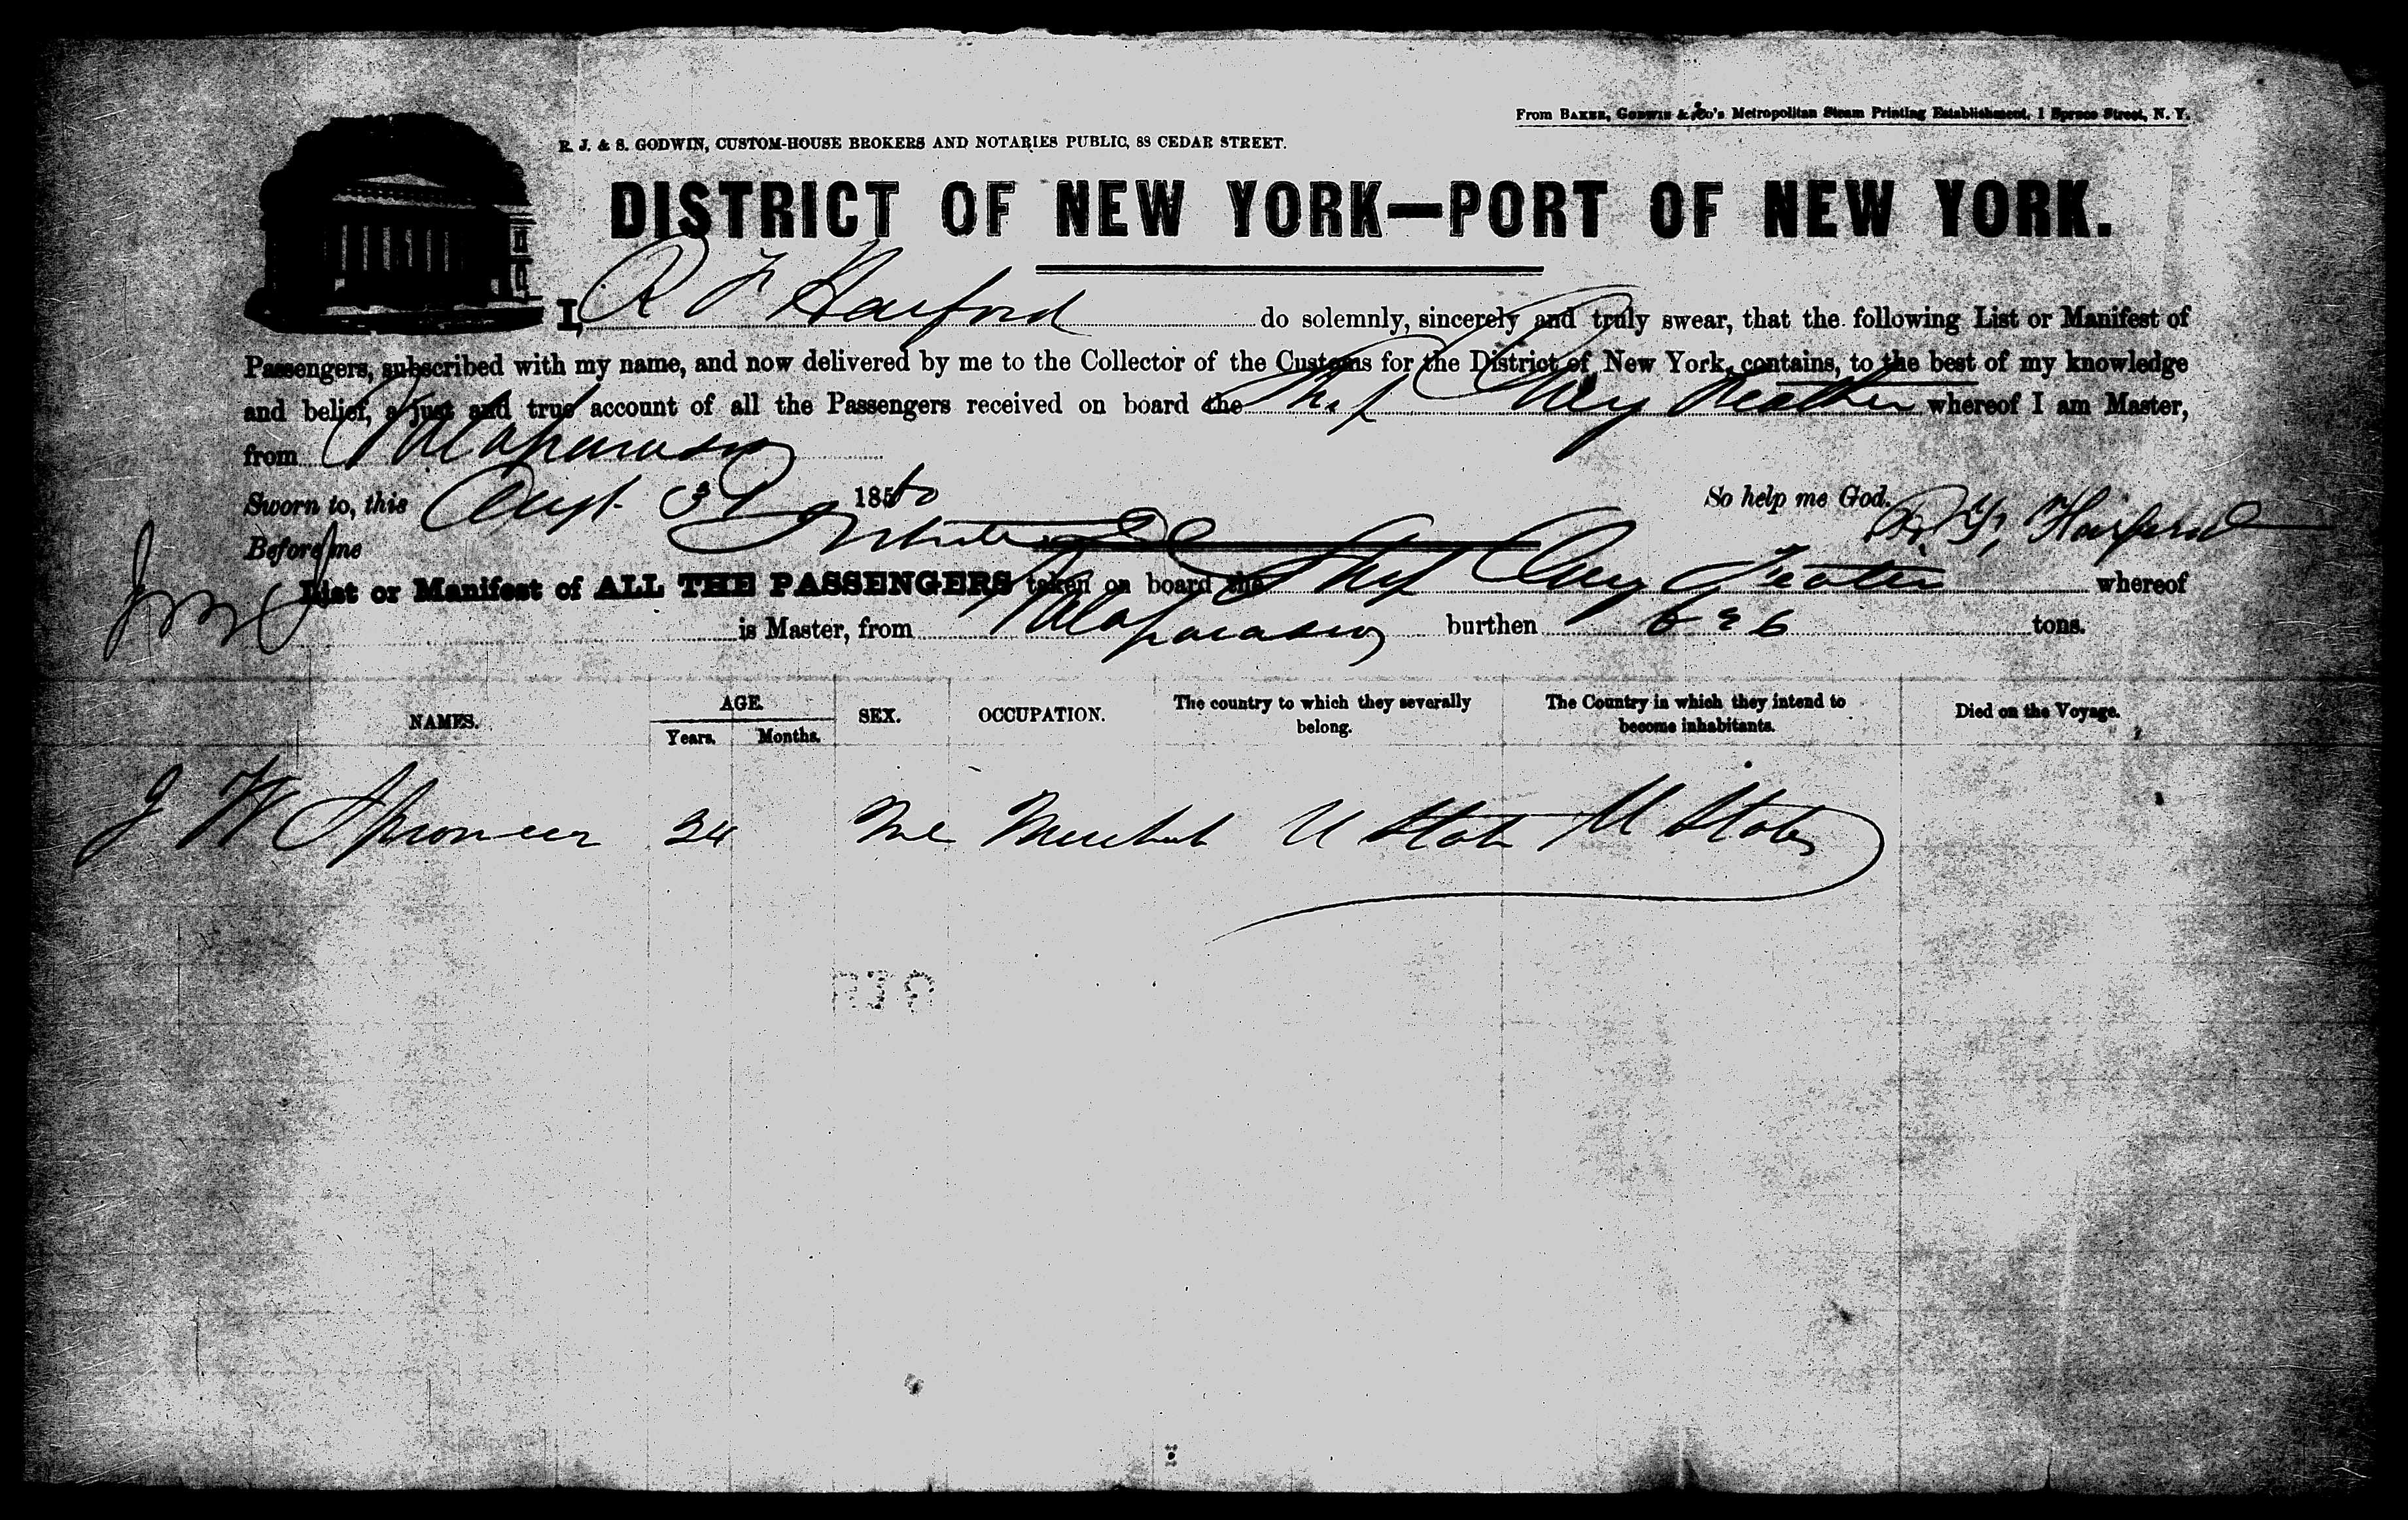 From BAKER, GODWIN & Co's Metropolitan Steam Printing Establishment, 1 Spruce Street, N. Y.
R. J. & S. GODWIN, CUSTOM-HOUSE BROKERS AND NOTARIES PUBLIC, 88 CEDAR STREET.
DISTRICT OF NEW YORK—PORT OF NEW YORK.
I, R F Harford do solemnly, sincerely and truly swear, that the following List or Manifest of
Passengers, subscribed with my name, and now delivered by me to the Collector of the Customs for the District of New York, contains, to the best of my knowledge
and belief, a just and true account of all the Passengers received on board the Ship whereof I am Master,
from Valparaiso
Sworn to, this Augt. 31 185
So help me God. Harford
Before me
List or Manifest of ALL THE PASSENGERS taken on board the Ship whereof
is Master, from Valparaiso burthen tons.
NAMES. AGE. Years. Months. SEX. OCCUPATION. The country to which they severally belong. The Country in which they intend to become inhabitants. Died on the Voyage.
J W 34 Merchant U State U States